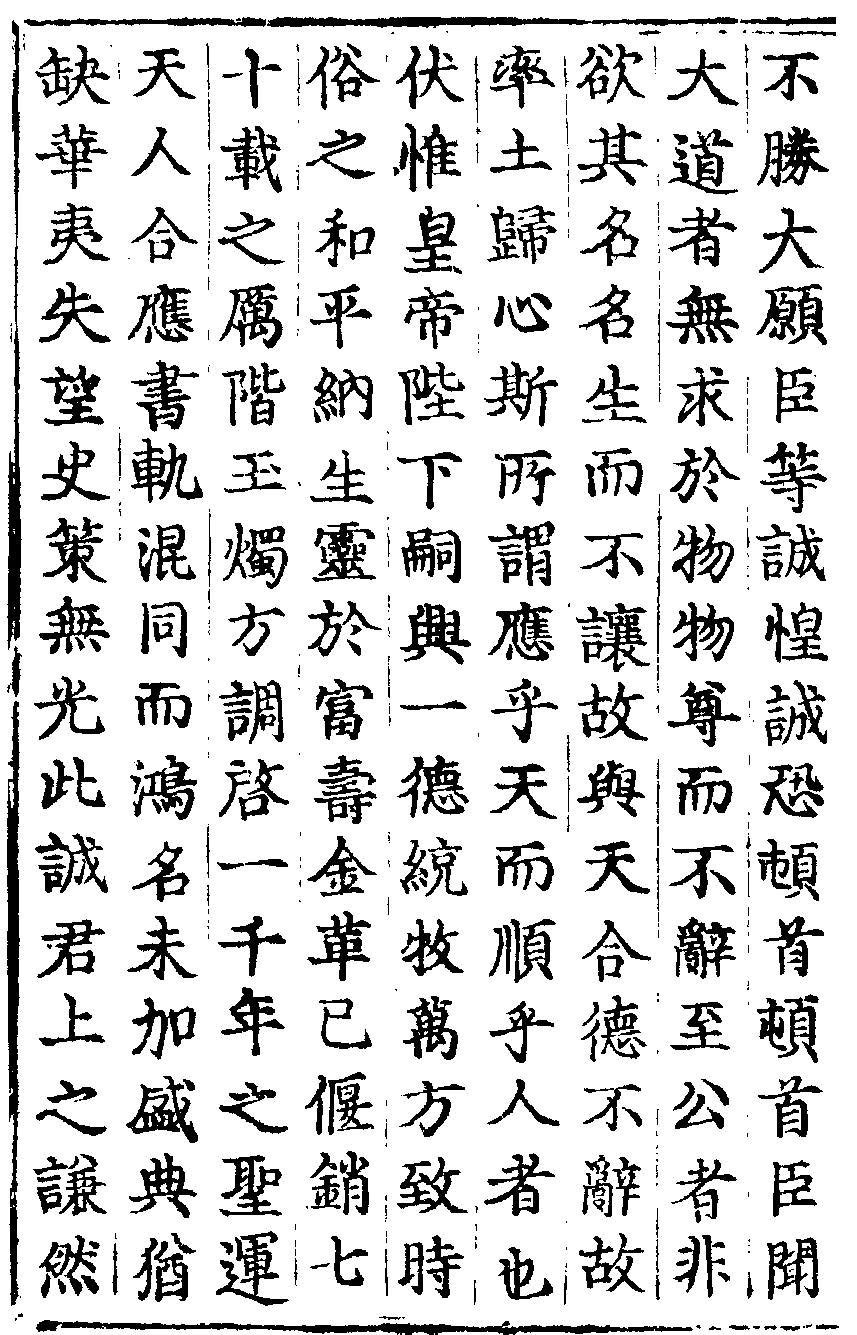 不勝大願臣等誠惶誠恐頓首頓首臣聞
大道者無求於物物尊而不辭至公者非
欲其名名生而不讓故與天合德不辭故
率土歸心斯所謂應乎天而順乎人者也
伏惟皇帝陛下嗣興一德統牧萬方致時
俗之和平納生靈於富壽金革已偃銷七
十載之厲階玉燭方調啓一千年之聖運
天人合應書軌混同而鴻名未加盛典猶
缺華夷失望史策無光此誠君上之謙然